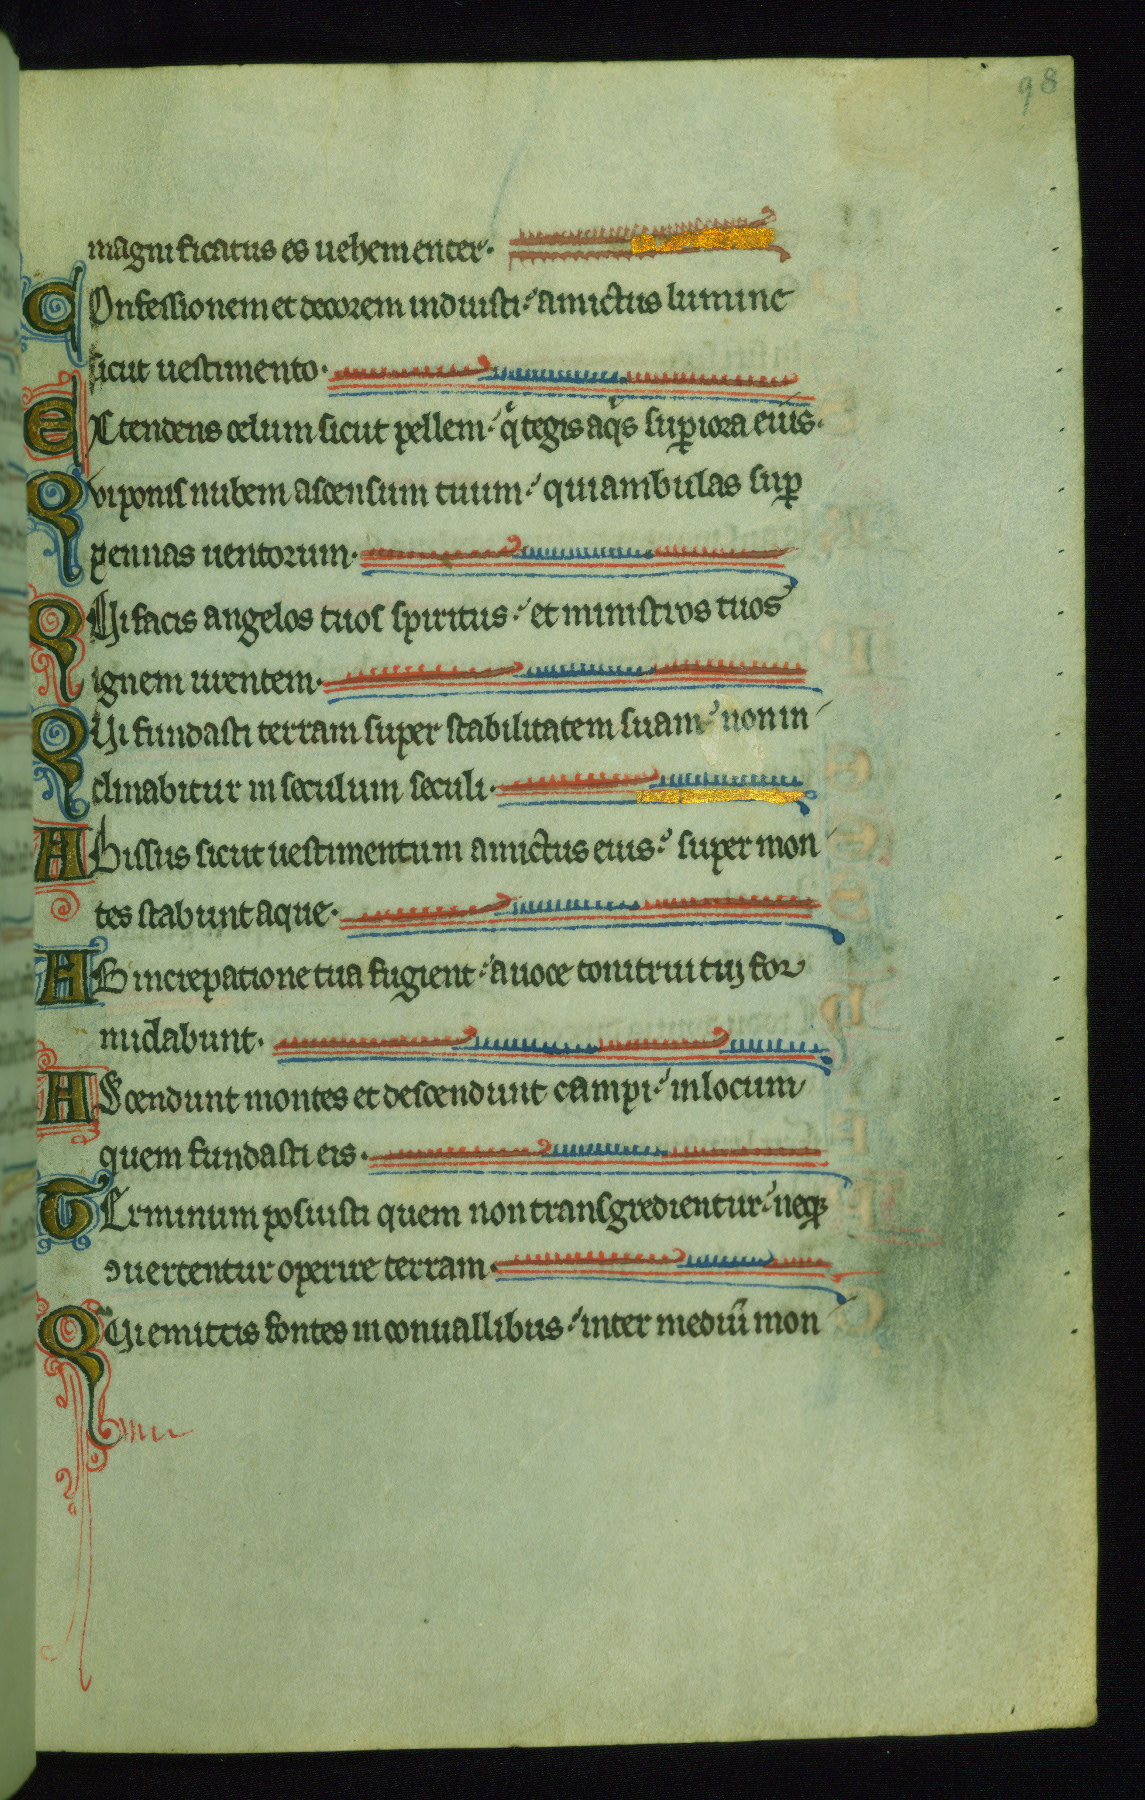 98
magnificatus es uehementer·
COnfessionem et decorem induisti· amictus lumine
sicut uestimento·
EXtendens celum sicut pellem· qͥ tegis aqͣs supͥiora eius·
Qvi ponis nubem ascensum tuum· qui ambulas suꝑ
pennas uentorum·
QUi facis angelos tuos spiritus· et ministros tuos
ignem urentem·
QUi fundasti terram super stabilitatem suam· non in
clinabitur in seculum seculi·
ABissus sicut uestimentum amictus eius· super mon
tes stabunt aque·
AB increpatione tua fugient· a uoce tonitrui tui for
midabunt·
AScendunt montes et descendunt campi· in locum
quem fundasti eis·
TErminum posuisti quem non transgredientur· neqꝫ
ꝯuertentur operire terram·
QUi emittis fontes in conuallibus· inter mediū mon